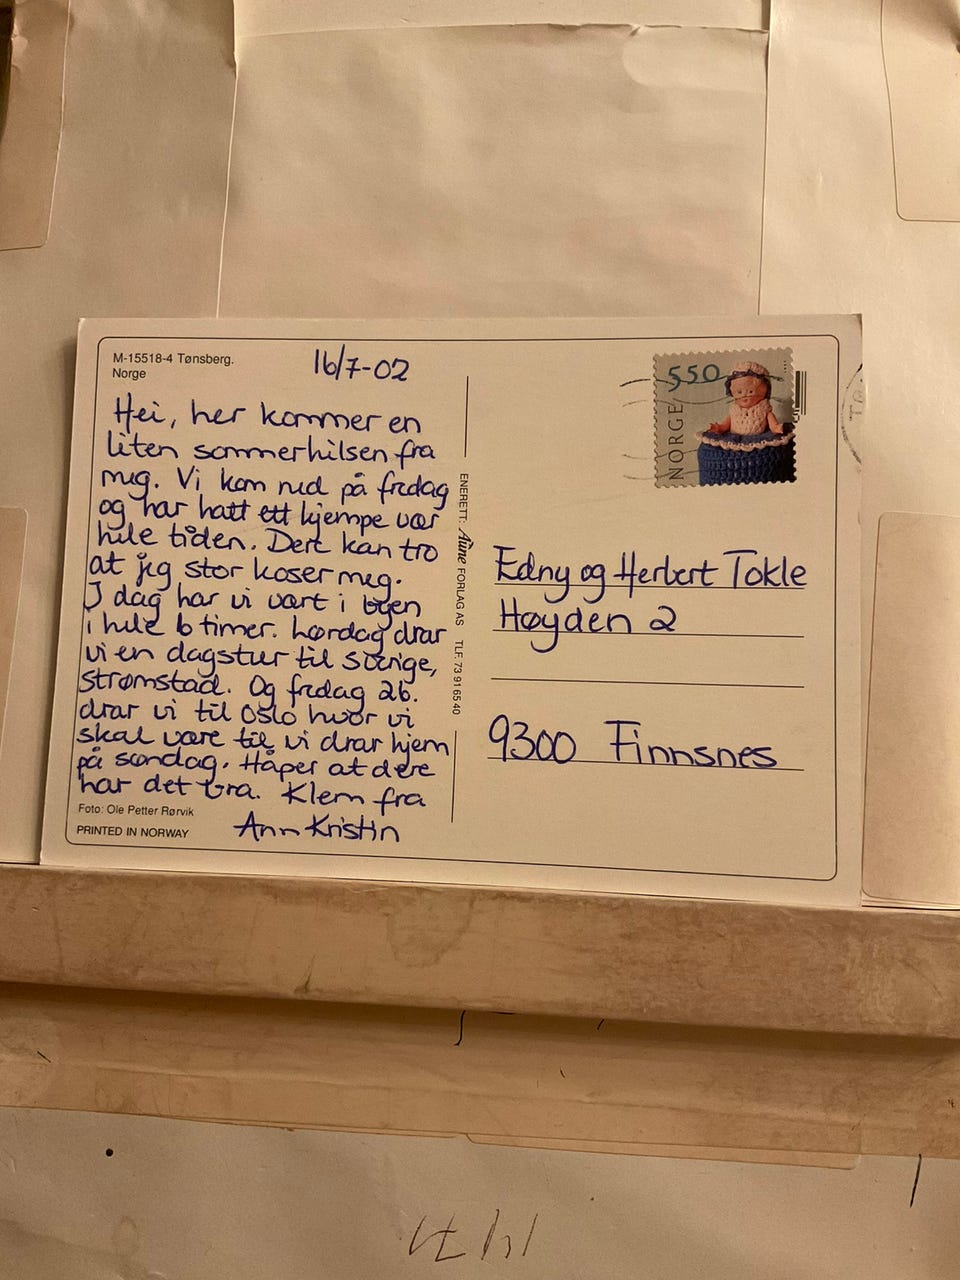 M-15518-4 Tønsberg.
Norge
16/7-02
Hei, her kommer en
liten sommerhilsen fra
meg. Vi kom ned på fredag
og har hatt ett kjempe vær
hele tiden. Dere kan tro
at jeg stor koser meg.
I dag har vi vært i byen
i hele 6 timer. Lørdag drar
vi en dagstur til Sverige,
Strømstad. Og fredag 26.
drar vi til Oslo hvor vi
skal være til vi drar hjem
på søndag. Håper at dere
har det bra. Klem fra
Ann Kristin
Foto: Ole Petter Rørvik
PRINTED IN NORWAY
ENERETT: Aune FORLAG AS TLF. 73 91 65 40
550
NORGE
Edny og Herbert Tokle
Høyden 2
9300 Finnsnes